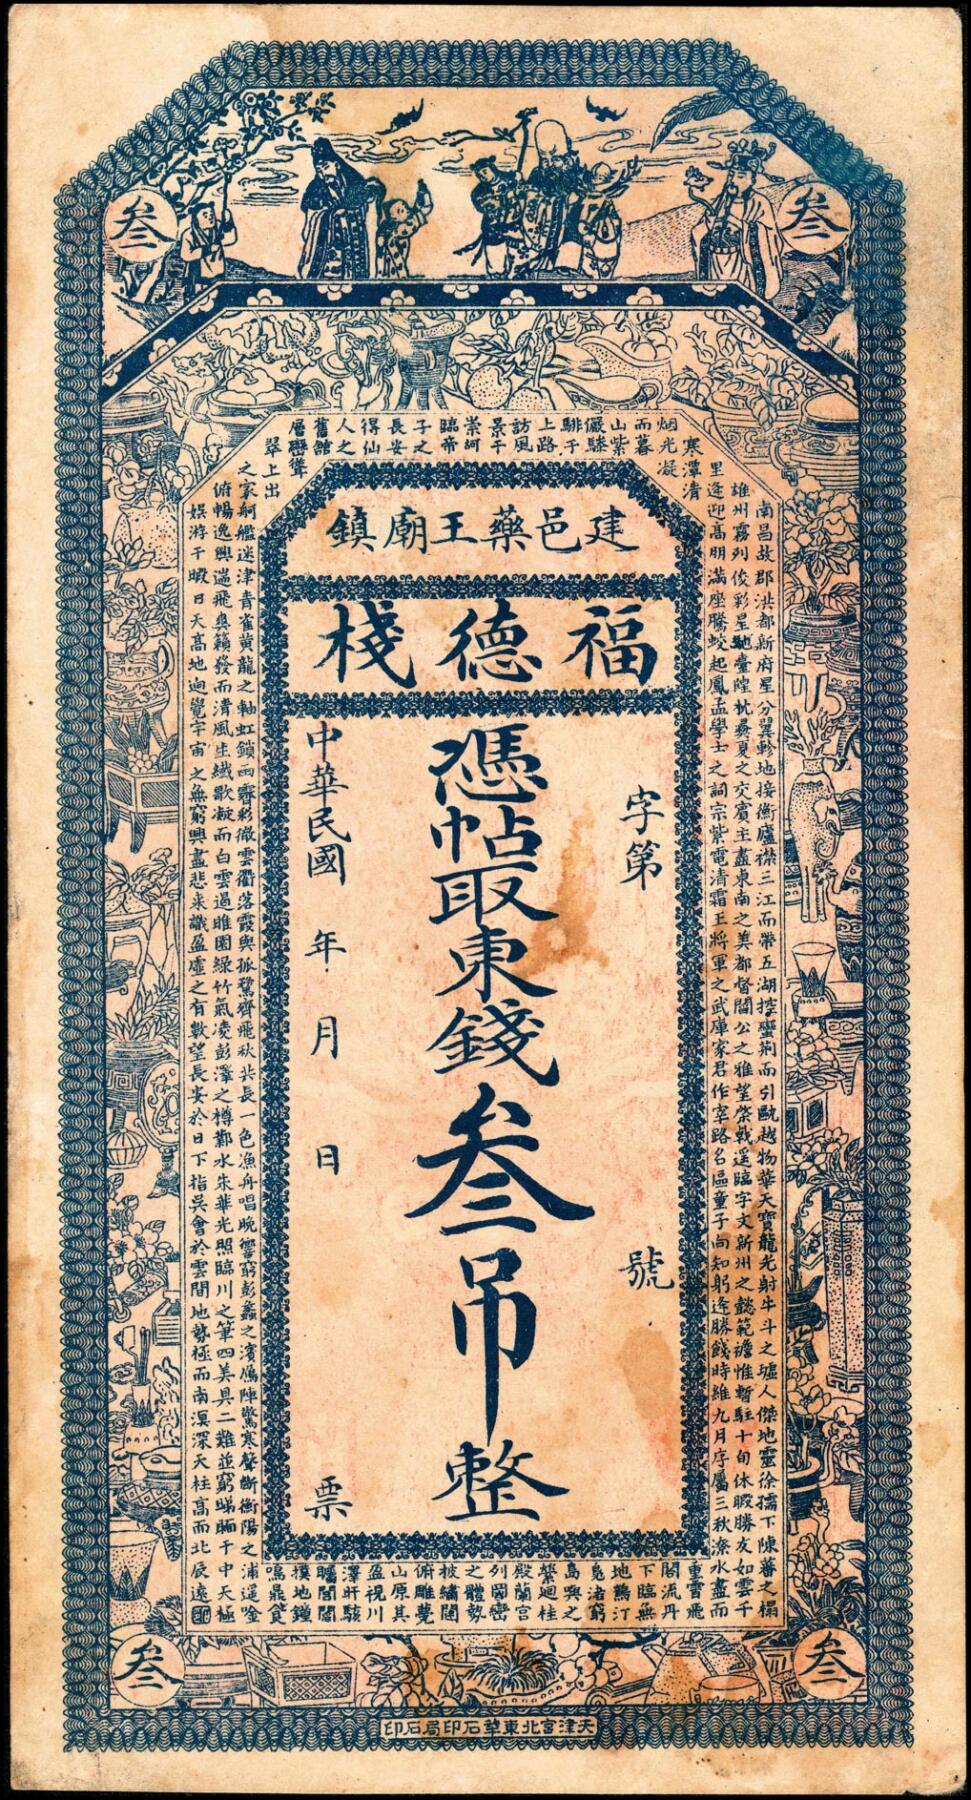 叁
叁
建邑藥王廟鎮
福德棧
字第 號
憑帖取東錢叁吊整
中華民國 年 月 日 票
南昌故郡洪都新府星分翼軫地接衡廬襟三江而帶五湖控蠻荊而引甌越物華天寶龍光射牛斗之墟人傑地靈徐孺下陳蕃之榻
雄州霧列俊彩星馳臺隍枕夷夏之交賓主盡東南之美都督閻公之雅望棨戟遥臨宇文新州之懿範襜惟暫駐十旬休暇勝友如雲千
里逢迎高朋滿座騰蛟起鳳孟學士之詞宗紫電清霜王將軍之武庫家君作宰路名區童子何知躬逢勝餞時維九月序屬三秋潦水盡而
寒潭清
烟光凝
而暮
山紫
儼驂
騑于
上路
訪風
景于
崇阿
臨帝
子之
長安
得仙
人之
舊館
層巒聳
翠上出
重霄飛
閣流丹
下臨無
地鶴汀
鳧渚窮
島嶼之
縈迴桂
殿蘭宮
列岡巒
之體勢
披繡闥
俯雕甍
山原其
盈視川
澤盱駭
矚閭閻
撲地鐘
鳴鼎食
之家舸艦迷津青雀黃龍之軸虹銷雨霽彩徹雲衢落霞與孤鶩齊飛秋共長一色漁舟唱晚響窮彭蠡之濱鴈陣驚寒聲斷衡陽之浦遥唫
俯暢逸興遄飛爽籟發而清風生纖歌凝而白雲遏睢園綠竹氣凌彭澤之樽鄴水朱華光照臨川之筆四美具二難並窮睇眄于中天極
娛游于暇日天高地迥覺宇宙之無窮興盡悲來識盈虛之有數望長安於日下指吳會於雲間地勢極而南溟深天柱高而北辰遠
叁
叁
天津宮北東華石印局石印